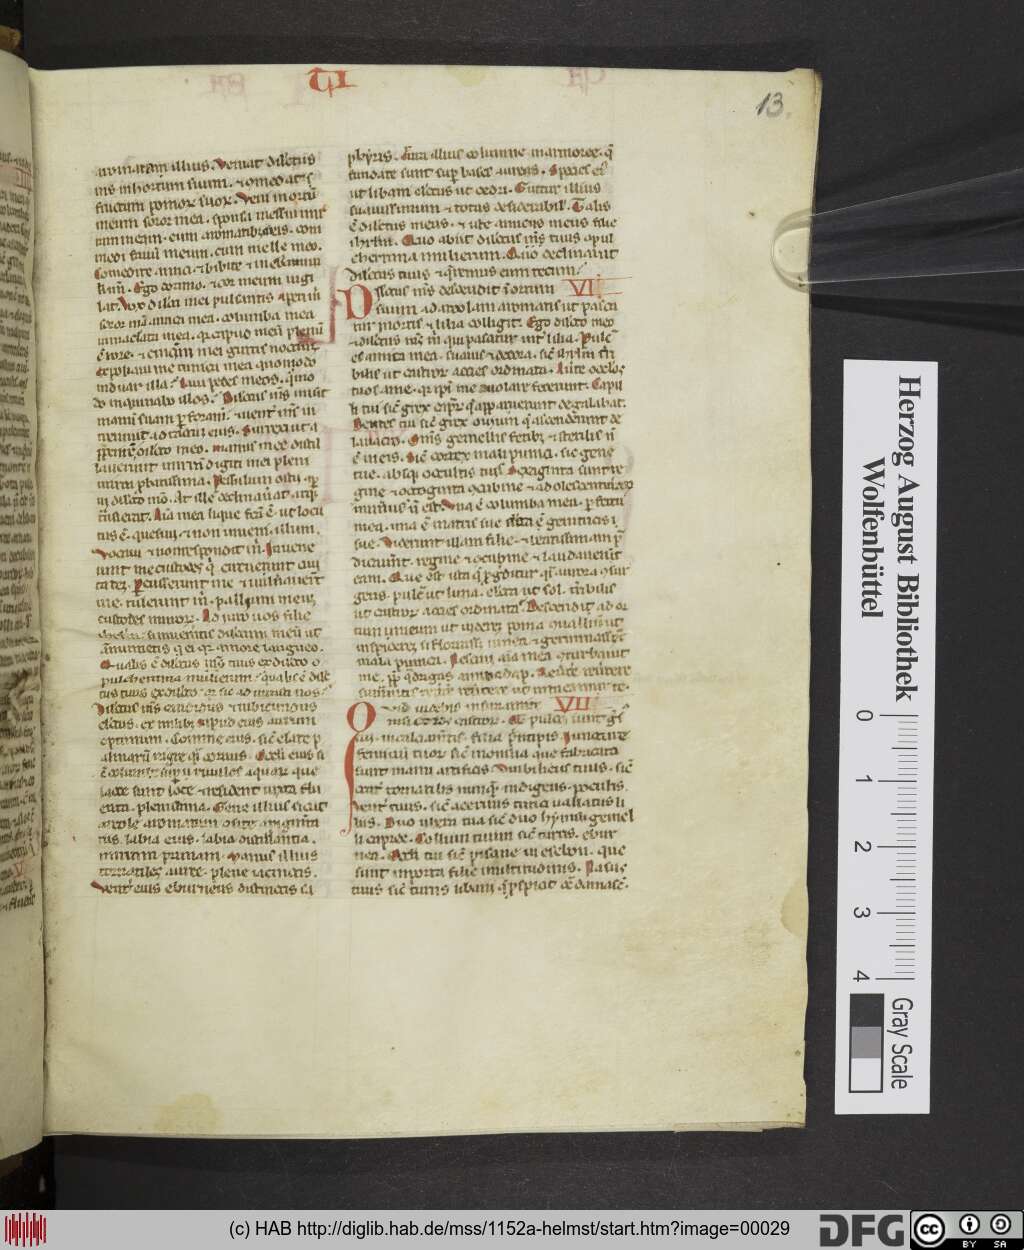 13.
aromatum illius. Veniat dilectus
ms̄ in hortum suum. ⁊ comedat
fructum pomor̄ suor̄. Veni in ortū
meum soror mea. sponsa messui mir
ram meam. cum aromatibus meis. com
medi fauū meum. cum melle meo.
Comedite amici ⁊ bibite ⁊ inebriamini
karīmi. Ego dormio. ⁊ cor meum uigi
lat. Vox dilecti mei pulsantis aperi m̄
soror mā. amica mea. columba mea
inmaculata mea. q̄ caput meū plenū
ē rore. ⁊ cincīni mei guttis noctiū
Expoliaui me tunica mea quomodo
induar illa. Laui pedes meos. q̄mō
inquinabo illos. Dilectus ms̄ misit
manū suam per foramē. ⁊ uent̄ ms̄ in
tremuit ad tactū eius. Surrexi ut a
perirem dilecto meo. manus mee distil
lauerunt mirrā digiti mei pleni
mirra pbatissima. Pessulum ostii ap̄
ui dilecto mō. At ille declinaūat atq̄
tn̄sierat. Aīa mea liquefc̄a ē. ut locu
tus ē. quesiui ⁊ non inueni illum.
Vocaui ⁊ non respondit m̄. Inuene
runt me custodes q̄ circueunt ciui
tatez. Percusserunt me ⁊ uulnauert̄
me. tulerunt m̄ pallium meuz
custodes muror̄. Adiuro uos filie
si inueneritis dilectum meū ut
Qualis ē dilectus tuus ex dilecto o
pulcherrima mulierum. qualis ē dile
tus tuus ex dilecto. q̄ sic adiurasti nos.
Dilectus ms̄ candidus ⁊ rubicundus
electus. ex milib. Caput eius aurum
optimum. Come eius. sic̄ elate p
almarū nigre q̄si coruus. Oculi eius si
c̄ columbe sup̄ riuulos aquar̄. que
lacte sunt lote ⁊ resident iuxta flu
enta plenissima. Gene illius sicut
areole aromatum
labia eius. lilia distillantia.
mirram primam. Manus illius
tornatiles auree. plene iacinctis.
Vent̄ eius eburneus distinctus sa
phyris. Crura illius columne marmoree. q̄
fundate sunt sup̄ bases aureas. Species ei᷒
ut libani electus ut cedri. Guttur illius
suauissimum ⁊ totus desiderabil̄. Talis
ē dilectus meus. ⁊ iste amicus meus filie
ihrl̄m. Quo abiit dilectus ms̄ tuus o pul
cherrima mulierum. Quo declinauit
dilectus tuus ⁊ q̄remus eum tecum.
Dilectus ms̄ descendit ī ortum VI
suum. ad areolam aromatis ut pasca
tur in ortis ⁊ lilia colligit. Ego dilecto meo
⁊ dilectus ms̄ m̄ qui pascitur int̄ lilia. Pulc̄
es amica mea. suauis ⁊ decora. sic̄ ihrl̄m t̄ri
bilis ut castror̄ acies ordinata. Auerte oculos
tuos a me. q̄ ip̄i me auolare fecerunt. Capil
li tui sic̄ grex capr̄ q̄ apparuerunt de galabat.
Dentes tui sic̄ grex ouium q̄ ascenderunt de
lauacro. Om̄s gemellis fetib ⁊ sterilis n̄
ē in eis. Sic̄ cortex mali punici. sic̄ gene
tue. absq̄ occultis tuis. Sexaginta sunt re
gine ⁊ octoginta ocubine ⁊ adolescentular̄
numerus n̄ est. Una ē columba mea. perfecta
mea. una ē matris sue electa ē genitricis
sue. Viderunt illam filie. ⁊ beatissimam p̄
dicauert̄. regine ⁊ ocubine ⁊ laudauert̄
eam. Que est ista q̄ p̄greditur q̄si aurora osur
gens. pulc̄ ut luna. electa ut sol. t̄ribilis
ut castror̄ acies ordinata. Descendi ad or
tum nucum ut uiderez poma quallium. ut
inspicerez si floruiss̄ uinea ⁊ germinassent
mala punica. Nesciui aīa mea oturbauit
me. p̄p̄ qdrigas aminadap. Reuert̄e reuertere
sunamitis reuert̄e reuertere ut intueamur te.
Quid uidebis in sunamite VII
nisi coros castror̄. Q̄ pulc̄ sunt gs̄s
tui in calciamt̄is. filia p̄ncipis. Iuncture
femorū tuor̄ sic̄ monilia que fabricata
sunt manu artificis. Umbilicus tuus. sic̄
crat̄ tornatilis nunq̄ indigens poculis.
Vent̄ tuus. sic̄ aceruus tritici uallatus li
liis. Duo ubera tua sic̄ duo hynuli gemel
li capree. Collum tuum sic̄ turris. ebur
nea. Oculi tui sic̄ piscine in esebon. que
sunt in porta filie multitudinis. Nasus
tuus sic̄ turris libani. q̄ p̄spicit oc̄ damasc̄.
Herzog August Bibliothek
Wolfenbüttel
0 1 2 3 4
Gray Scale
(c) HAB http://diglib.hab.de/mss/1152a-helmst/start.htm?image=00029
DFG
cc
BY SA